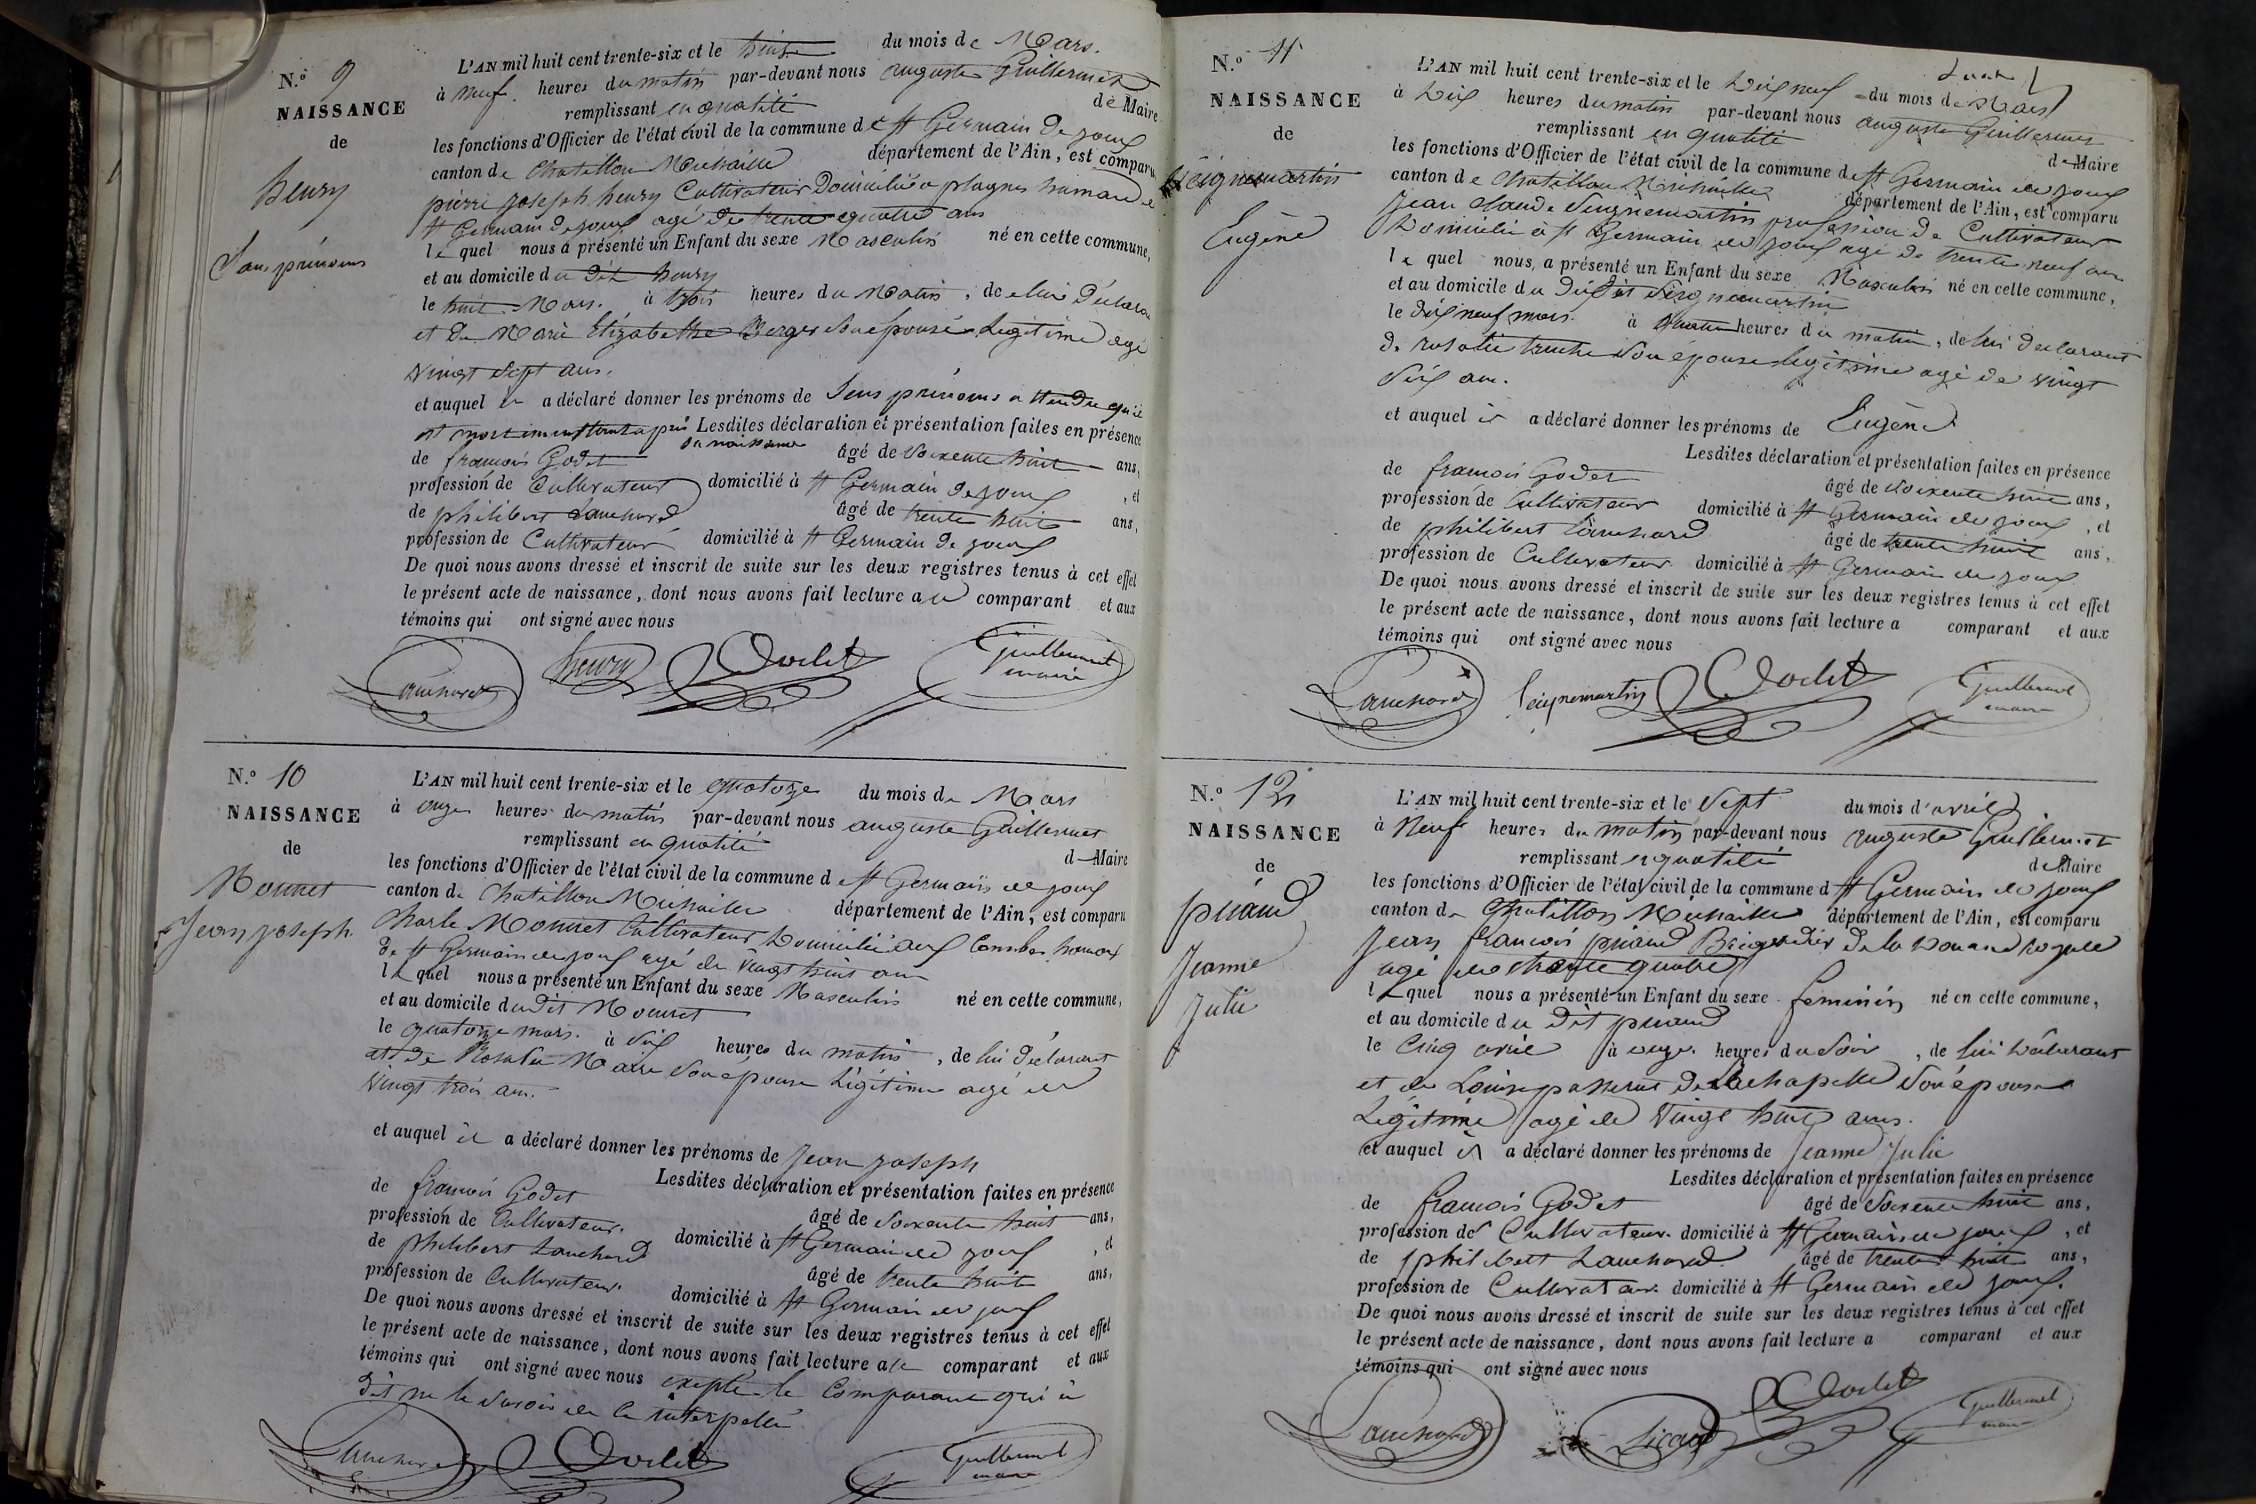 N.º 9
NAISSANCE
de
henry
Sans prénoms
L'AN mil huit cent trente-six et le huit du mois de Mars.
à neuf. heures du matin par-devant nous auguste Guillermet
remplissant en qualité de Maire
les fonctions d'Officier de l'état civil de la commune de St Germain de joux
canton de Chatillon Michaille département de l'Ain, est comparu
pierre joseph henry Cultivateur Domicilié a plagnes hameau de
St Germain de joux agé de trente quatre ans
le quel nous a présenté un Enfant du sexe Masculin né en cette commune,
et au domicile du dit henry
le huit Mars. à trois heures du Matin, de lui déclarant
et de Marie Elizabethe Berger Son epouse Legitime agé
vingt Sept ans.
et auquel il a déclaré donner les prénoms de Sens prénoms attendu qu'il
est mort immediatement apres Lesdites déclaration et présentation faites en présence
sa naissance
de francois Godet âgé de Soixente huit ans,
profession de Cultivateur domicilié à St Germain de joux, et
de philibert Lanchard âgé de trente huit ans,
profession de Cultivateur domicilié à St Germain de joux
De quoi nous avons dressé et inscrit de suite sur les deux registres tenus à cet effet
le présent acte de naissance, dont nous avons fait lecture au comparant et aux
témoins qui ont signé avec nous
Lanchard henry Godet Guillermet
maire
N.º 10
NAISSANCE
de
Mounet
Jean joseph.
L'AN mil huit cent trente-six et le quatorze du mois de Mars
à onze heures du matin par-devant nous auguste Guillermet
remplissant en qualité de Maire
les fonctions d'Officier de l'état civil de la commune de St Germain de joux
canton de Chatillon Michaille département de l'Ain, est comparu
Charle Mounet Cultivateur Domicilié aux Combes hameau
de St Germain de joux agé de vingt huit ans
le quel nous a présenté un Enfant du sexe Masculin né en cette commune,
et au domicile du dit Mounet
le quatorze mars. à Six heures du matin, de lui déclarant
et de Rosalie Maire Son epouse Légitime agé de
vingt trois ans.
et auquel il a déclaré donner les prénoms de Jean joseph
Lesdites déclaration et présentation faites en présence
de francois Godet âgé de Soixente huit ans,
profession de Cultivateur. domicilié à St Germain de joux, et
de philibert Lanchard âgé de trente huit ans,
profession de Cultivateur. domicilié à St Germain de joux
De quoi nous avons dressé et inscrit de suite sur les deux registres tenus à cet effet
le présent acte de naissance, dont nous avons fait lecture a le comparant et aux
témoins qui ont signé avec nous exepté le Comparant qui a
dit ne le Savoir de ce interpellé
Lanchard Godet Guillermet
maire
N.º 11
NAISSANCE
de
Seignemartin
Eugène
L'AN mil huit cent trente-six et le dix neuf du mois de Mars
à dix heures du matin par-devant nous auguste Guillermet
remplissant en qualité de Maire
les fonctions d'Officier de l'état civil de la commune de St Germain de joux
canton de Chatillon Michaille département de l'Ain, est comparu
Jean Claude Seignemartin profession de Cultivateur
Domicilié à St Germain de joux agé de trente neuf ans
le quel nous, a présenté un Enfant du sexe Masculin né en cette commune,
et au domicile du dit Seignemartin
le dix neuf mars. à quatre heures du matin, de lui declarant
de rosalie Son épouse legitime agé de vingt
Six ans.
et auquel il a déclaré donner les prénoms de Eugène
Lesdites déclaration et présentation faites en présence
de francois Godet âgé de Soixente huit ans,
profession de Cultivateur domicilié à St Germain de joux, et
de philibert Lanchard âgé de trente huit ans,
profession de Cultivateur domicilié à St Germain de joux
De quoi nous avons dressé et inscrit de suite sur les deux registres tenus à cet effet
le présent acte de naissance, dont nous avons fait lecture a comparant et aux
témoins qui ont signé avec nous
Lanchard Seignemartin Godet Guillermet
maire
N.º 12
NAISSANCE
de
picaud
Jeanne
Julie
L'AN mil huit cent trente-six et le Sept du mois d'avril
à Neuf heures du matin par-devant nous auguste Guillermet
remplissant en qualité de Maire
les fonctions d'Officier de l'état civil de la commune d St Germain de joux
canton de Chatillon Michaille département de l'Ain, est comparu
Jean francois picaud Brigadier de la Douane Royale
agé de trente quatre
le quel nous a présenté un Enfant du sexe feminin né en cette commune,
et au domicile du dit picaud
le Cinq avril à onze heures du Soir, de lui déclarant
et de Louise passerat de Lachapelle Son épouse
Legitime agé de vingt huit ans.
et auquel il a déclaré donner les prénoms de Jeanne Julie
Lesdites déclaration et présentation faites en présence
de francois Godet âgé de Soixente huit ans,
profession de Cultivateur. domicilié à St Germain de joux, et
de philibert Lanchard âgé de trente huit ans,
profession de Cultivateur. domicilié à St Germain de joux.
De quoi nous avons dressé et inscrit de suite sur les deux registres tenus à cet effet
le présent acte de naissance, dont nous avons fait lecture a comparant et aux
témoins qui ont signé avec nous
Lanchard picaud Godet Guillermet
maire